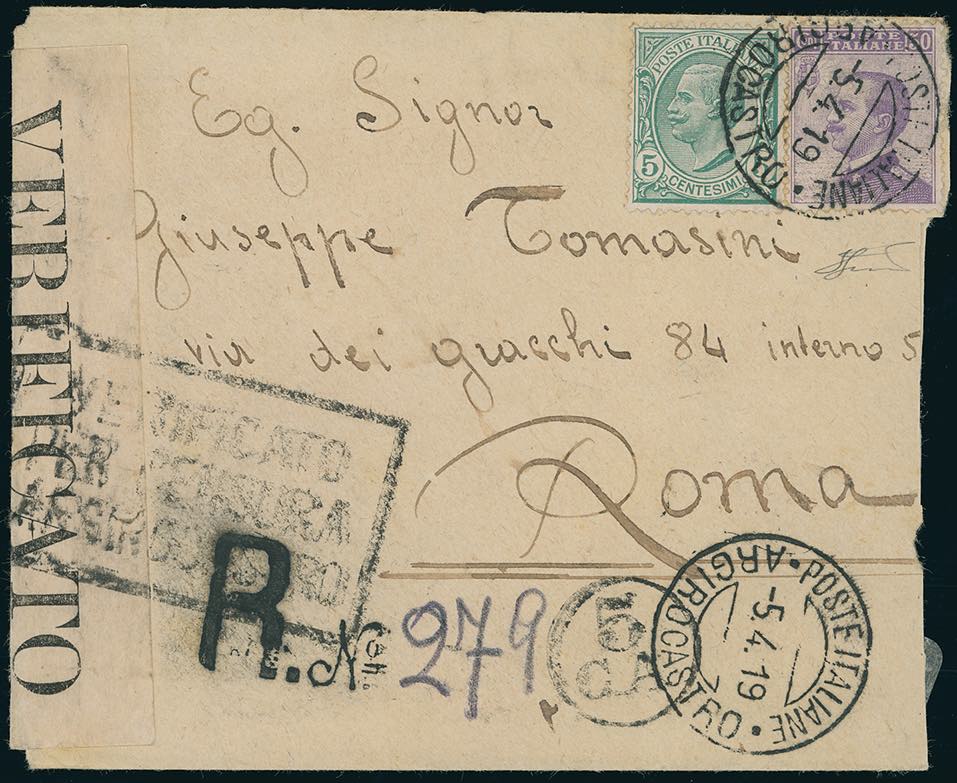 Eg. Signor
Giuseppe Tomasini
via dei gracchi 84 interno 5
Roma
POSTE ITALIANE
5
CENTESIMI
POSTE ITALIANE 50
POSTE ITALIANE • ARGIROCASTRO •
5.4.19
VERIFICATO
VERIFICATO
PER CENSURA
R. No 279
5
CA
POSTE ITALIANE • ARGIROCASTRO •
-5.4.19